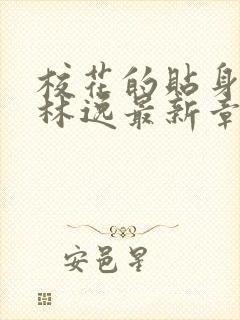 校花的貼身
林逸最新章
安邑星